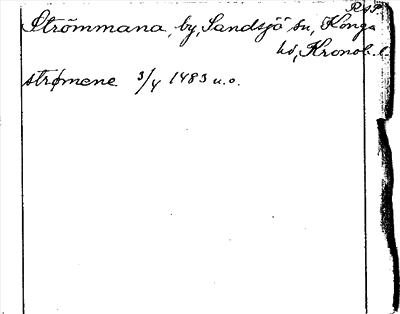 Strömmana, by, Sandsjö sn, Konga
hd, Kronob. l.
strømene 3/4 1483 u.o.